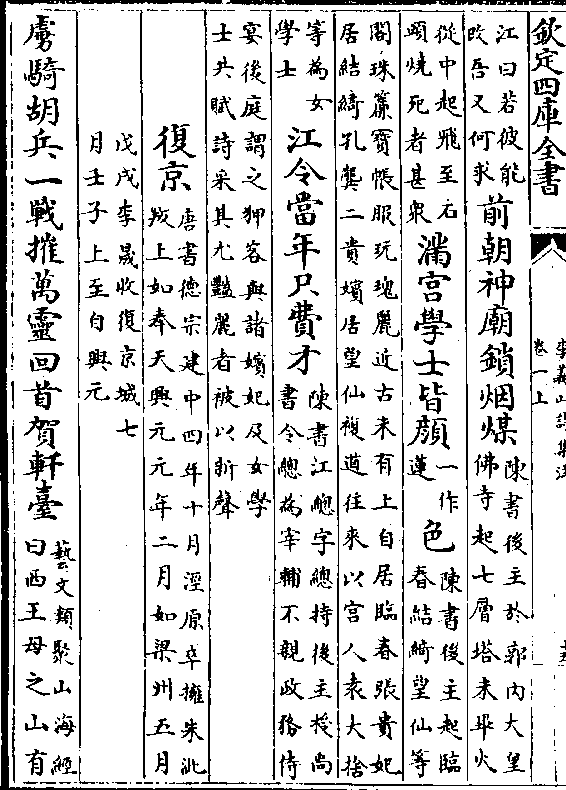 欽定四庫全書
李義山詩集注
卷一上
江曰若彼能
敗吾又何求
前朝神廟鎖烟煤
陳書後主於郭内大皇
佛寺起七層塔未畢火
從中起飛至石
頭燒死者甚衆
滿宫學士皆顔
一作
蓮
色
陳書後主起臨
春結綺望仙等
閣珠簾寶帳服玩瑰麗近古未有上自居臨春張貴妃
居結綺孔龔二貴嬪居望仙複道往來以宫人袁大捨
等為女
學士
江令當年只費才
陳書江總字總持後主授尚
書令總為宰輔不親政務侍
宴後庭謂之狎客與諸嬪妃及女學
士共賦詩采其尤豔麗者被以新聲
復京
唐書德宗建中四年十月涇原卒擁朱泚
叛上如奉天興元元年二月如梁州五月
戊戌李晟收復京城七
月壬子上至自興元
虜騎胡兵一戰摧萬靈回首賀軒臺
藝文類聚山海經
曰西王母之山有